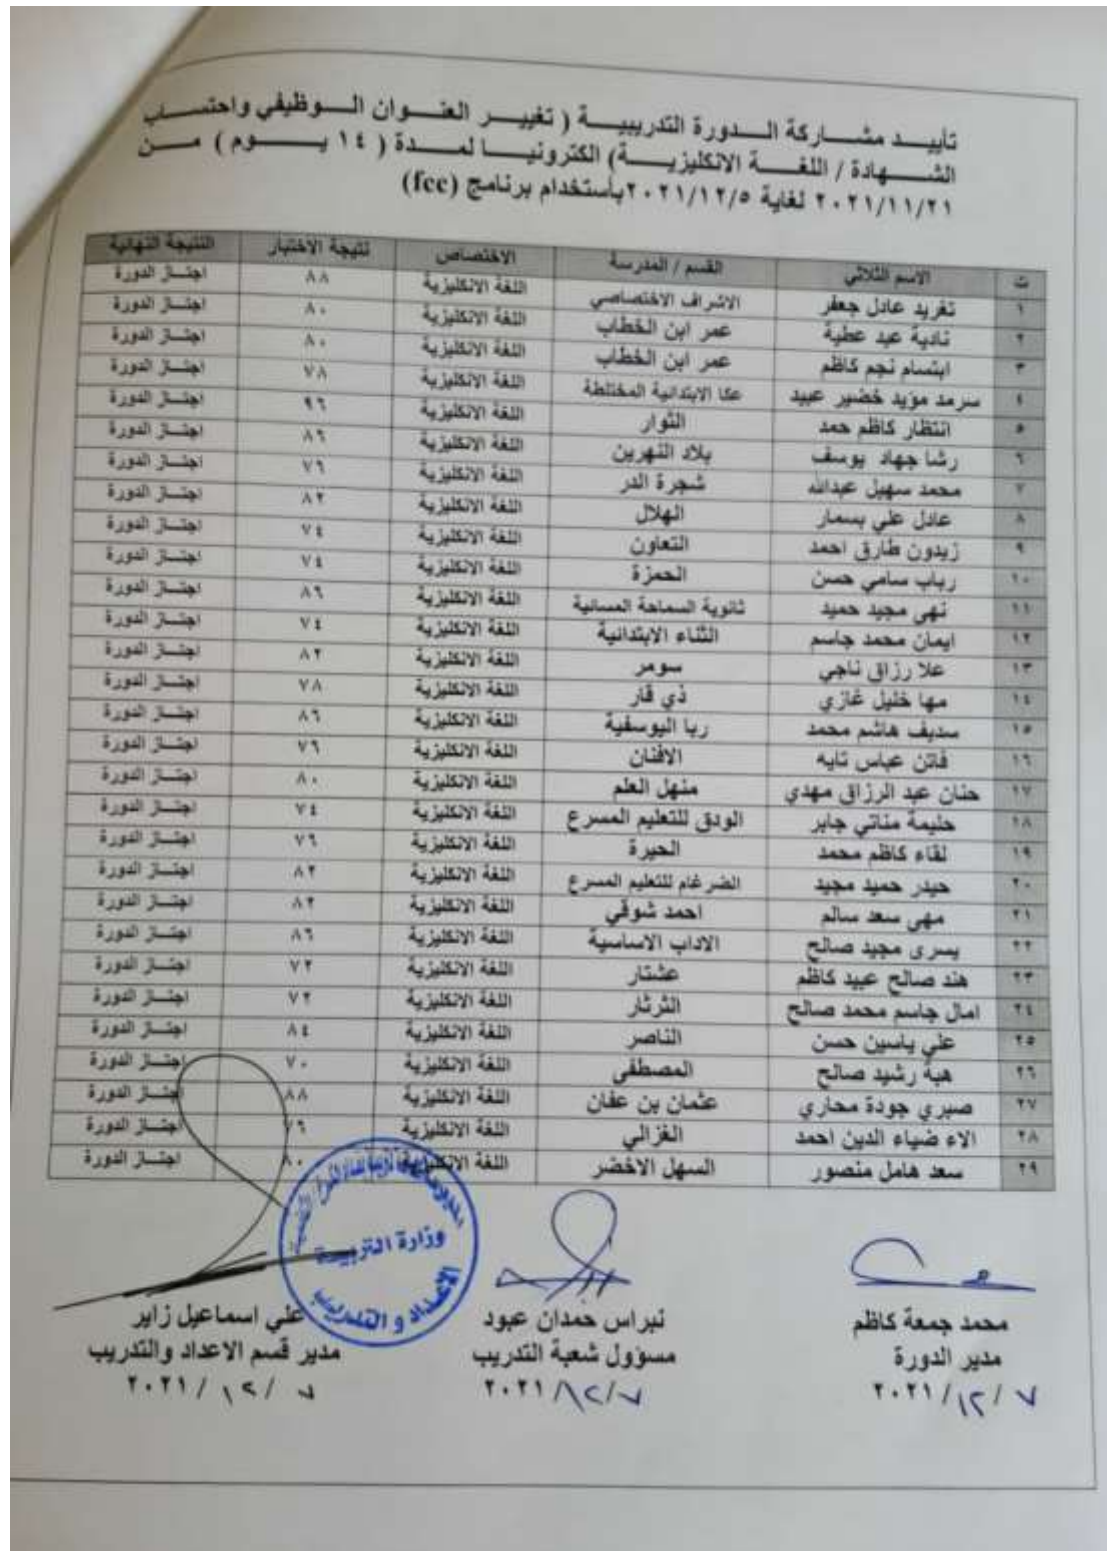 تأييد مشاركة الدورة التدريبية ( تغيير العنوان الوظيفي واحتساب
الشهادة / اللغة الانكليزية) الكترونيا لمدة ( ١٤ يوم ) من
٢٠٢١/١١/٢١ لغاية ٢٠٢١/١٢/٥ بأستخدام برنامج (fcc)
ت الاسم الثلاثي القسم / المدرسة الاختصاص نتيجة الاختبار النتيجة النهائية
١ تغريد عادل جعفر الاشراف الاختصاصي اللغة الانكليزية ٨٨ اجتاز الدورة
٢ نادية عبد عطية عمر ابن الخطاب اللغة الانكليزية ٨٠ اجتاز الدورة
٣ ابتسام نجم كاظم عمر ابن الخطاب اللغة الانكليزية ٨٠ اجتاز الدورة
٤ سرمد مؤيد خضير عبيد عكا الابتدائية المختلطة اللغة الانكليزية ٧٨ اجتاز الدورة
٥ انتظار كاظم حمد الثوار اللغة الانكليزية ٩٦ اجتاز الدورة
٦ رشا جهاد يوسف بلاد النهرين اللغة الانكليزية ٨٦ اجتاز الدورة
٧ محمد سهيل عبدالله شجرة الدر اللغة الانكليزية ٧٦ اجتاز الدورة
٨ عادل علي بسمار الهلال اللغة الانكليزية ٨٢ اجتاز الدورة
٩ زيدون طارق احمد التعاون اللغة الانكليزية ٧٤ اجتاز الدورة
١٠ رباب سامي حسن الحمزة اللغة الانكليزية ٧٤ اجتاز الدورة
١١ نهى مجيد حميد ثانوية السماحة المسائية اللغة الانكليزية ٨٦ اجتاز الدورة
١٢ ايمان محمد جاسم الثناء الابتدائية اللغة الانكليزية ٧٤ اجتاز الدورة
١٣ علا رزاق ناجي سومر اللغة الانكليزية ٨٢ اجتاز الدورة
١٤ مها خليل غازي ذي قار اللغة الانكليزية ٧٨ اجتاز الدورة
١٥ سديف هاشم محمد ربا اليوسفية اللغة الانكليزية ٨٦ اجتاز الدورة
١٦ فاتن عباس تايه الافنان اللغة الانكليزية ٧٦ اجتاز الدورة
١٧ حنان عبد الرزاق مهدي منهل العلم اللغة الانكليزية ٨٠ اجتاز الدورة
١٨ حليمة مناتي جابر الودق للتعليم المسرع اللغة الانكليزية ٧٤ اجتاز الدورة
١٩ لقاء كاظم محمد الحيرة اللغة الانكليزية ٧٦ اجتاز الدورة
٢٠ حيدر حميد مجيد الضرغام للتعليم المسرع اللغة الانكليزية ٨٢ اجتاز الدورة
٢١ مهى سعد سالم احمد شوقي اللغة الانكليزية ٨٢ اجتاز الدورة
٢٢ يسرى مجيد صالح الاداب الاساسية اللغة الانكليزية ٨٦ اجتاز الدورة
٢٣ هند صالح عبيد كاظم عشتار اللغة الانكليزية ٧٢ اجتاز الدورة
٢٤ امال جاسم محمد صالح الثرثار اللغة الانكليزية ٧٢ اجتاز الدورة
٢٥ علي ياسين حسن الناصر اللغة الانكليزية ٨٤ اجتاز الدورة
٢٦ هبة رشيد صالح المصطفى اللغة الانكليزية ٧٠ اجتاز الدورة
٢٧ صبري جودة محاري عثمان بن عفان اللغة الانكليزية ٨٨ اجتاز الدورة
٢٨ الاء ضياء الدين احمد الغزالي اللغة الانكليزية ٧٦ اجتاز الدورة
٢٩ سعد هامل منصور السهل الاخضر اللغة الانكليزية ٨٠ اجتاز الدورة
وزارة التربية
الاعداد و التدريب
محمد جمعة كاظم نبراس حمدان عبود علي اسماعيل زاير
مدير الدورة مسؤول شعبة التدريب مدير قسم الاعداد والتدريب
٧ /١٢/ ٢٠٢١ ٧/١٢/ ٢٠٢١ ٧ /١٢ / ٢٠٢١